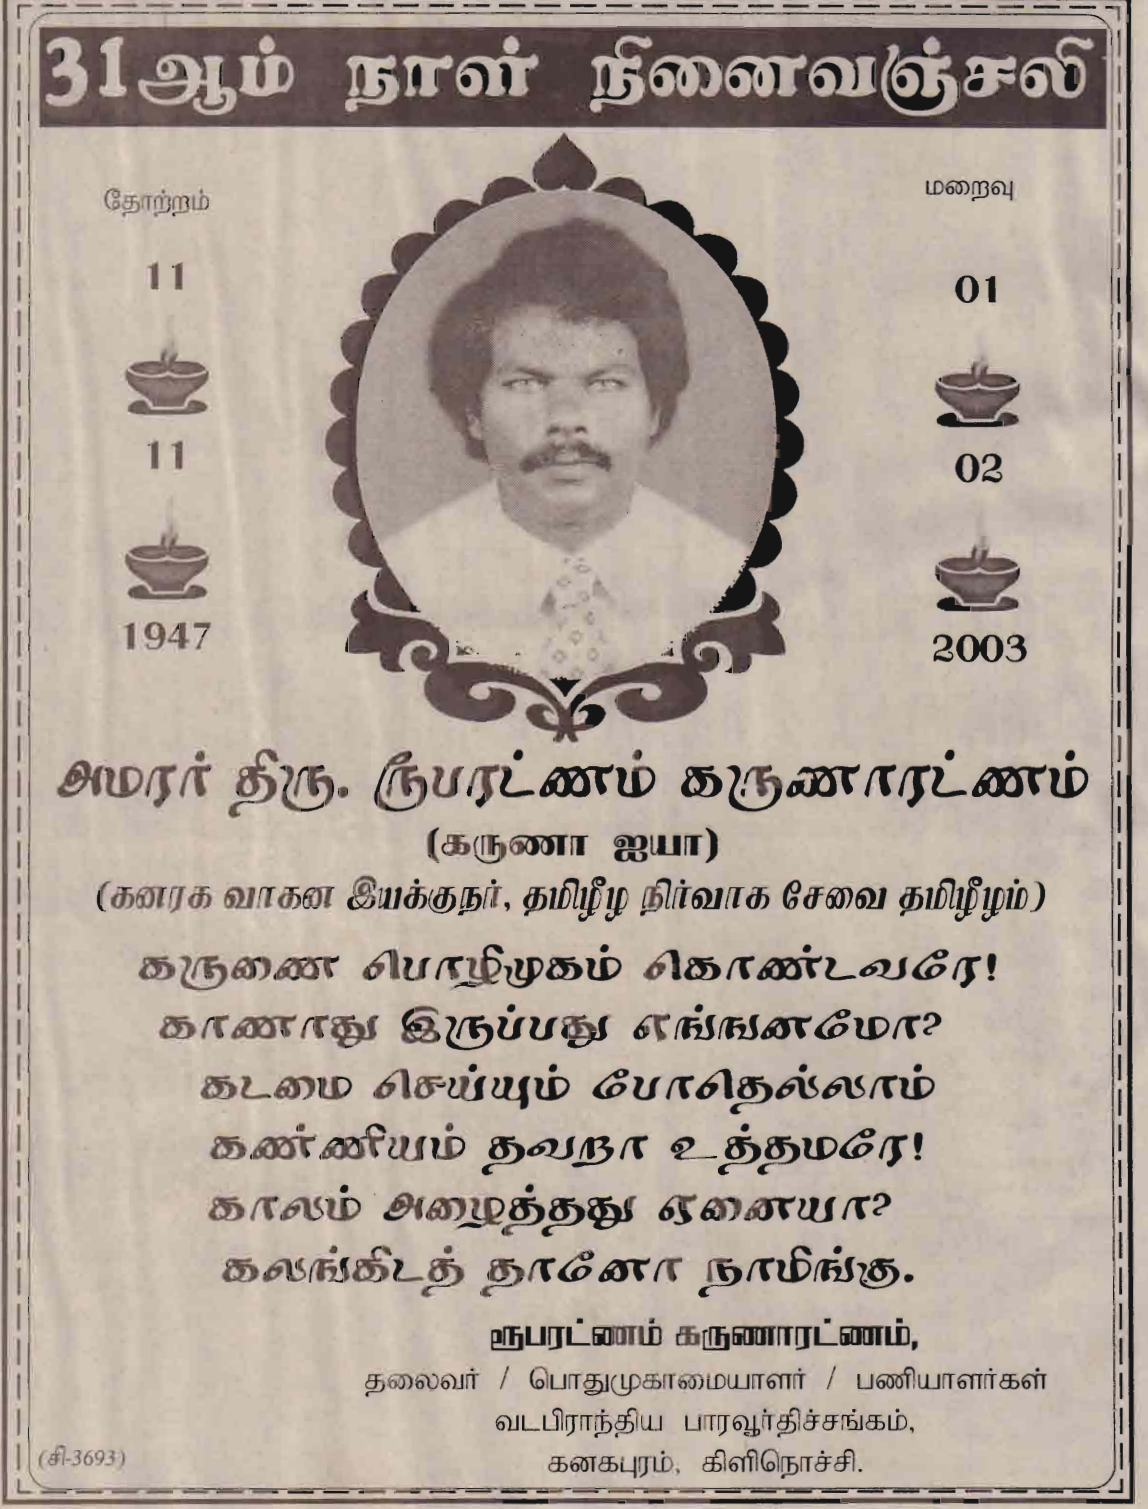 31ஆம் நாள் நினைவஞ்சலி
தோற்றம்
11
11
1947
மறைவு
01
02
2003
அமரர் திரு. ரூபரட்ணம் கருணாரட்ணம்
(கருணா ஐயா)
(கனரக வாகன இயக்குநர், தமிழீழ நிர்வாக சேவை தமிழீழம்)
கருணை பொழிமுகம் கொண்டவரே!
காணாது இருப்பது எங்ஙனமோ?
கடமை செய்யும் போதெல்லாம்
கண்ணியம் தவறா உத்தமரே!
காலம் அழைத்தது ஏனையா?
கலங்கிடத் தானோ நாமிங்கு.
ரூபரட்ணம் கருணாரட்ணம்,
தலைவர் / பொதுமுகாமையாளர் / பணியாளர்கள்
வடபிராந்திய பாரவூர்திச்சங்கம்,
கனகபுரம், கிளிநொச்சி.
(சி-3693)